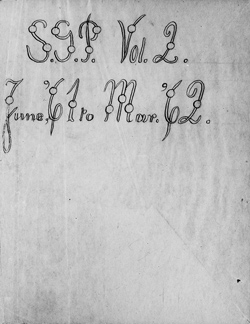 S.G.P. Vol. 2.
June, '61 to Mar. '62.